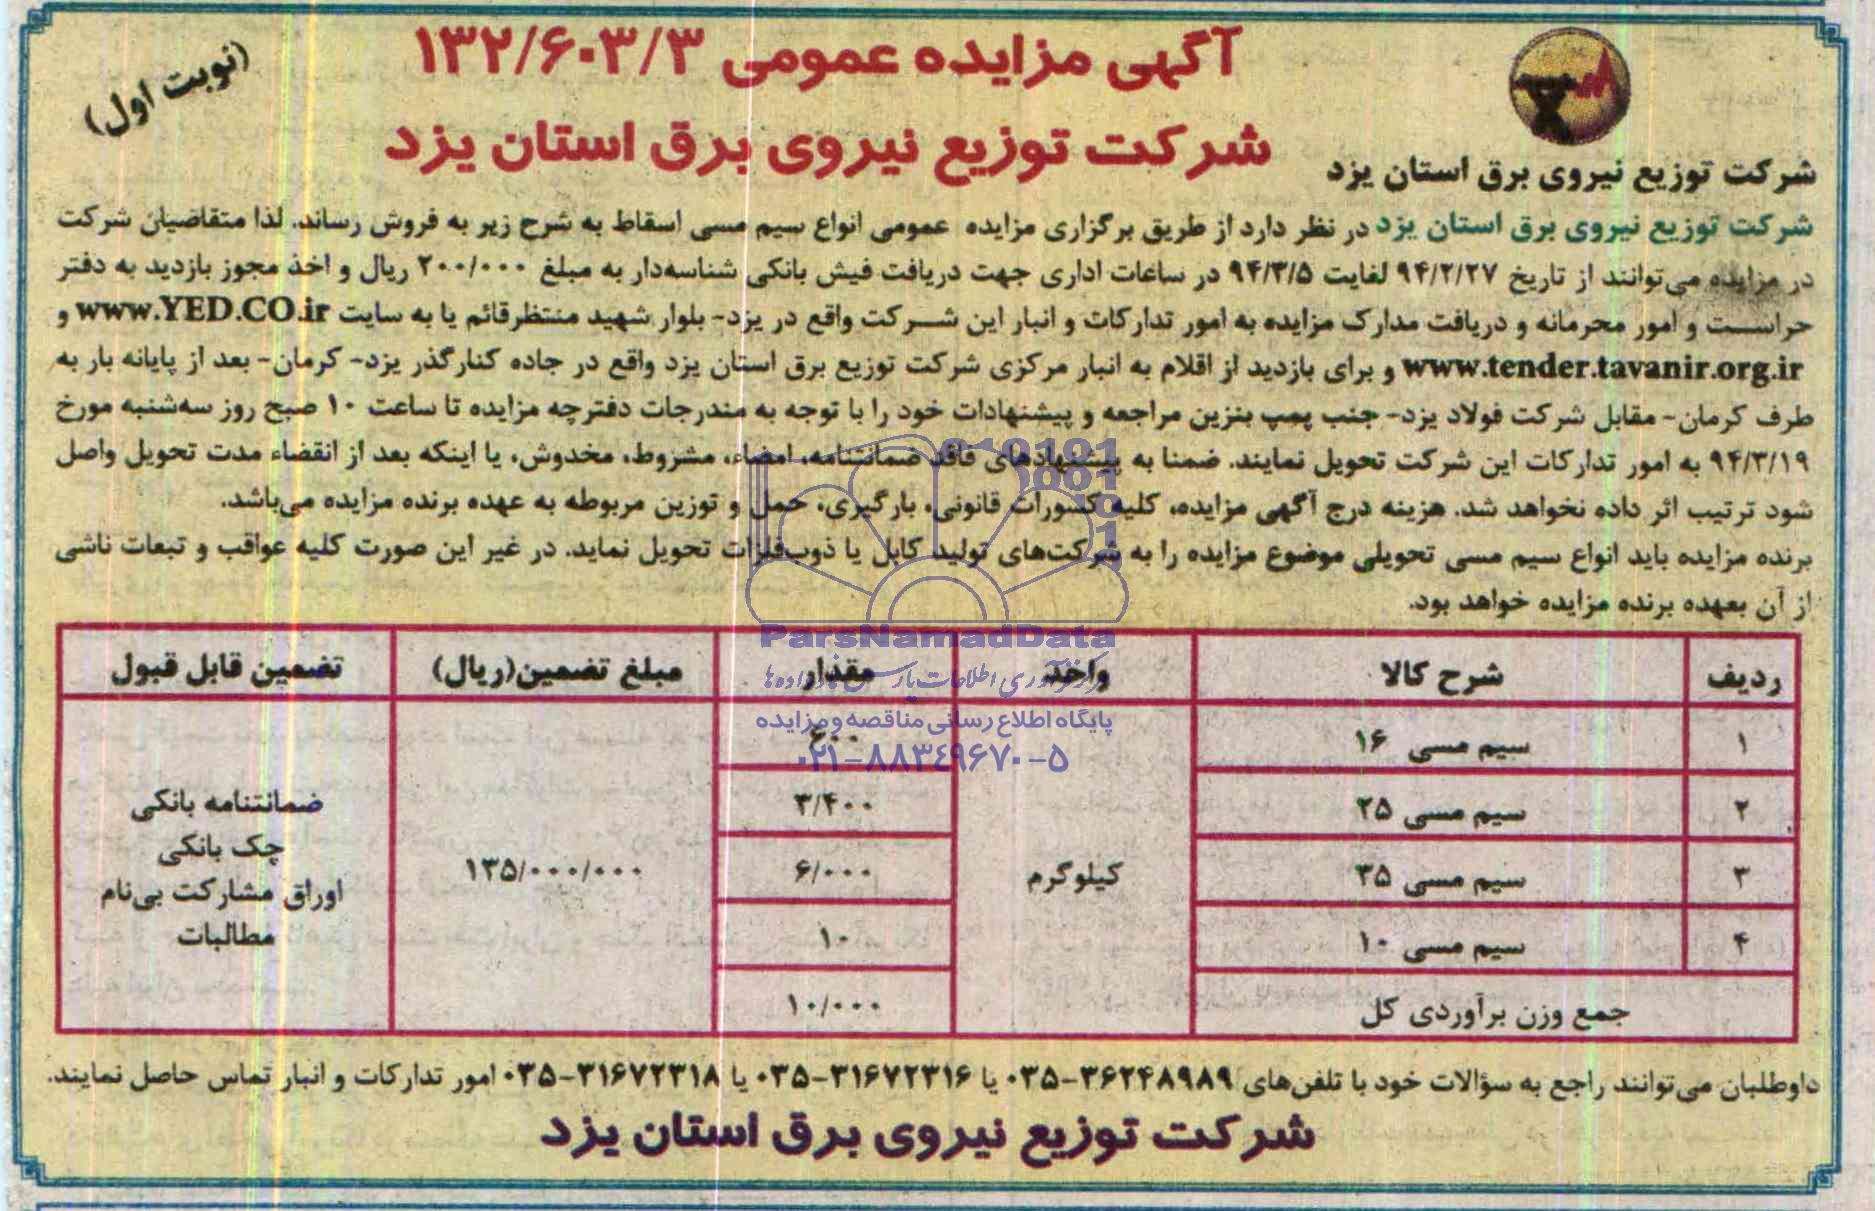 آگهی مزایده عمومی ۱۳۲/۶۰۳/۳
(نوبت اول)
شرکت توزیع نیروی برق استان یزد
شرکت توزیع نیروی برق استان یزد
شرکت توزیع نیروی برق استان یزد در نظر دارد از طریق برگزاری مزایده عمومی انواع سیم مسی اسقاط به شرح زیر به فروش رساند. لذا متقاضیان شرکت
در مزایده می‌توانند از تاریخ ۹۴/۲/۲۷ لغایت ۹۴/۳/۵ در ساعات اداری جهت دریافت فیش بانکی شناسه‌دار به مبلغ ۲۰۰/۰۰۰ ریال و اخذ مجوز بازدید به دفتر
حراست و امور محرمانه و دریافت مدارک مزایده به امور تدارکات و انبار این شرکت واقع در یزد- بلوار شهید منتظرقائم یا به سایت www.YED.CO.ir و
www.tender.tavanir.org.ir و برای بازدید از اقلام به انبار مرکزی شرکت توزیع برق استان یزد واقع در جاده کنارگذر یزد- کرمان- بعد از پایانه بار به
طرف کرمان- مقابل شرکت فولاد یزد- جنب پمپ بنزین مراجعه و پیشنهادات خود را با توجه به مندرجات دفترچه مزایده تا ساعت ۱۰ صبح روز سه‌شنبه مورخ
۹۴/۳/۱۹ به امور تدارکات این شرکت تحویل نمایند. ضمنا به پیشنهادهای فاقد ضمانتنامه، امضاء، مشروط، مخدوش، یا اینکه بعد از انقضاء مدت تحویل واصل
شود ترتیب اثر داده نخواهد شد. هزینه درج آگهی مزایده، کلیه کسورات قانونی، بارگیری، حمل و توزین مربوطه به عهده برنده مزایده می‌باشد.
برنده مزایده باید انواع سیم مسی تحویلی موضوع مزایده را به شرکت‌های تولید کابل یا ذوب‌فلزات تحویل نماید. در غیر این صورت کلیه عواقب و تبعات ناشی
از آن بعهده برنده مزایده خواهد بود.
ParsNamadData
پایگاه اطلاع رسانی مناقصه و مزایده
۰۲۱-۸۸۳۴۹۶۷۰-۵
ردیف شرح کالا واحد مقدار مبلغ تضمین(ریال) تضمین قابل قبول
۱ سیم مسی ۱۶ ۶۰۰
۲ سیم مسی ۲۵ ۳/۴۰۰
۳ سیم مسی ۳۵ ۶/۰۰۰
۴ سیم مسی ۱۰ ۱۰
جمع وزن برآوردی کل ۱۰/۰۰۰
کیلوگرم
۱۳۵/۰۰۰/۰۰۰
ضمانتنامه بانکی
چک بانکی
اوراق مشارکت بی‌نام
مطالبات
داوطلبان می‌توانند راجع به سؤالات خود با تلفن‌های ۳۶۲۴۸۹۸۹-۰۳۵ یا ۳۱۶۷۲۳۱۶-۰۳۵ یا ۳۱۶۷۲۳۱۸-۰۳۵ امور تدارکات و انبار تماس حاصل نمایند.
شرکت توزیع نیروی برق استان یزد